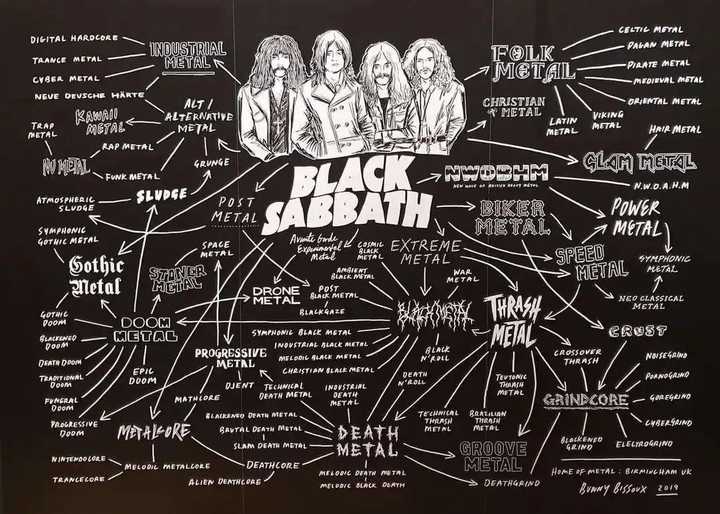 DIGITAL HARDCORE
TRANCE METAL
CYBER METAL
NEUE DEUTSCHE HÄRTE
INDUSTRIAL
METAL
KAWAII
METAL
ALT /
ALTERNATIVE
METAL
TRAP
METAL
RAP METAL
NU METAL
FUNK METAL
GRUNGE
FOLK
METAL
CELTIC METAL
PAGAN METAL
PIRATE METAL
MEDIEVAL METAL
ORIENTAL METAL
CHRISTIAN
METAL
LATIN
METAL
VIKING
METAL
HAIR METAL
GLAM METAL
BLACK
SABBATH
NWOBHM
NEW WAVE OF BRITISH HEAVY METAL
N.W.O.A.H.M
ATMOSPHERIC
SLUDGE
SLUDGE
POST
METAL
BIKER
METAL
POWER
METAL
SYMPHONIC
GOTHIC METAL
Gothic
Metal
SPACE
METAL
Avante Garde
Experimental
Metal
COSMIC
BLACK
METAL
EXTREME
METAL
SPEED
METAL
SYMPHONIC
METAL
STONER
METAL
AMBIENT
BLACK METAL
WAR
METAL
DRONE
METAL
POST
BLACK METAL
NEO CLASSICAL
METAL
GOTHIC
DOOM
DOOM
METAL
BLACKGAZE
BLACK METAL
THRASH
METAL
CRUST
BLACKENED
DOOM
SYMPHONIC BLACK METAL
INDUSTRIAL BLACK METAL
MELODIC BLACK METAL
CHRISTIAN BLACK METAL
BLACK
N'ROLL
CROSSOVER
THRASH
NOISEGRIND
DEATH DOOM
PROGRESSIVE
METAL
DEATH
N'ROLL
TEUTONIC
THRASH
METAL
PORNOGRIND
TRADITIONAL
DOOM
EPIC
DOOM
DJENT
TECHNICAL
DEATH METAL
INDUSTRIAL
DEATH
METAL
GRINDCORE
GOREGRIND
FUNERAL
DOOM
MATHCORE
BLACKENED DEATH METAL
TECHNICAL
THRASH
METAL
BRAZILIAN
THRASH
METAL
CYBERGRIND
PROGRESSIVE
DOOM
METALCORE
BRUTAL DEATH METAL
DEATH
METAL
BLACKENED
GRIND
ELECTROGRIND
SLAM DEATH METAL
GROOVE
METAL
NINTENDOCORE
MELODIC METALCORE
DEATHCORE
TRANCECORE
ALIEN DEATHCORE
MELODIC DEATH METAL
MELODIC BLACK DEATH
DEATHGRIND
HOME OF METAL : BIRMINGHAM UK
BUNNY BISSOUX 2019